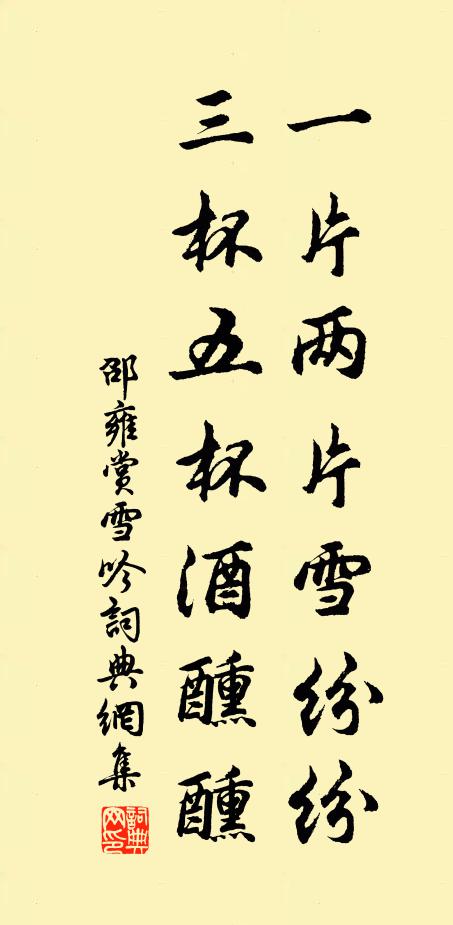 一片两片雪纷纷
三杯五杯酒醺醺
邵雍赏雪吟詞典網集
詞典网印